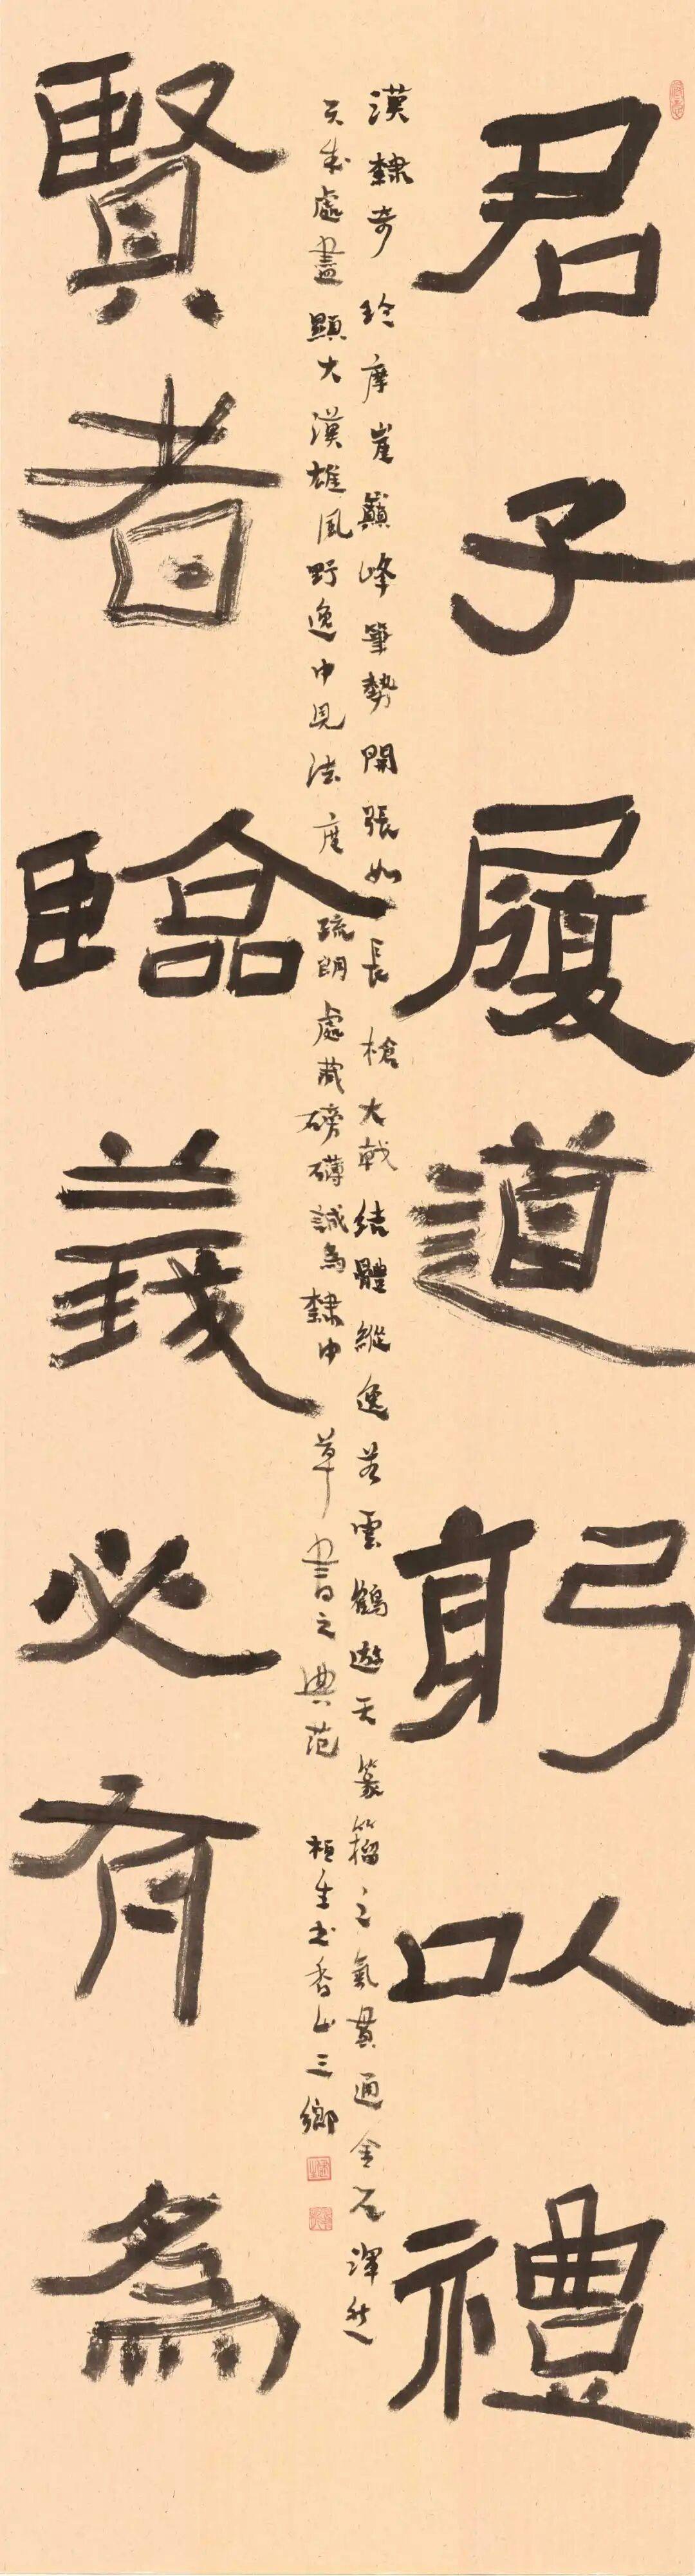 君子履道躬以禮
漢隸奇珍摩崖巔峰筆勢開張如長槍大戟結體縱逸若雲鶴遊天篆籀之氣貫通金石渾然
天成處盡顯大漢雄風野逸中見法度疏朗處藏磅礴誠為隸中草書之典范
桓生書香山三鄉
賢者臨義必有為